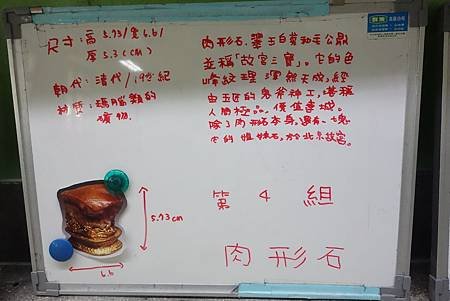 尺寸:高 5.73/寬 6.6/
厚 5.3(cm)
朝代:清代/19世紀
材質:瑪瑙類的
礦物.
肉形石.翠玉白菜和毛公鼎
並稱「故宮三寶」。它的色
峰紋理 渾然天成,經
由玉匠的鬼斧神工,堪稱
人間極品,價值連城。
除了肉形石本身,還有一塊
它的姐妹石,於北京故宮。
5.73cm
6.6
第 4 組
肉形石